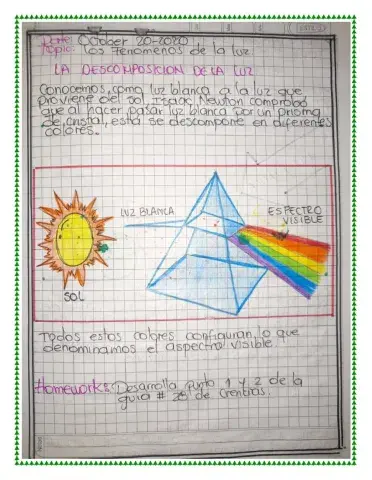 Date: October 20-2020
Topic: Los Fenómenos de la luz
LA DESCOMPOSICIÓN DE LA LUZ
Conocemos como luz blanca a la luz que
proviene del sol. Isaac Newton comprobó
que al hacer pasar luz blanca por un prisma
de cristal, esta se descompone en diferentes
colores.
LUZ BLANCA
ESPECTRO
VISIBLE
SOL
Todos estos colores configuran lo que
denominamos el aspectro visible
Homework: Desarrolla punto 1 y 2 de la
guia # 28 de Ciencias.